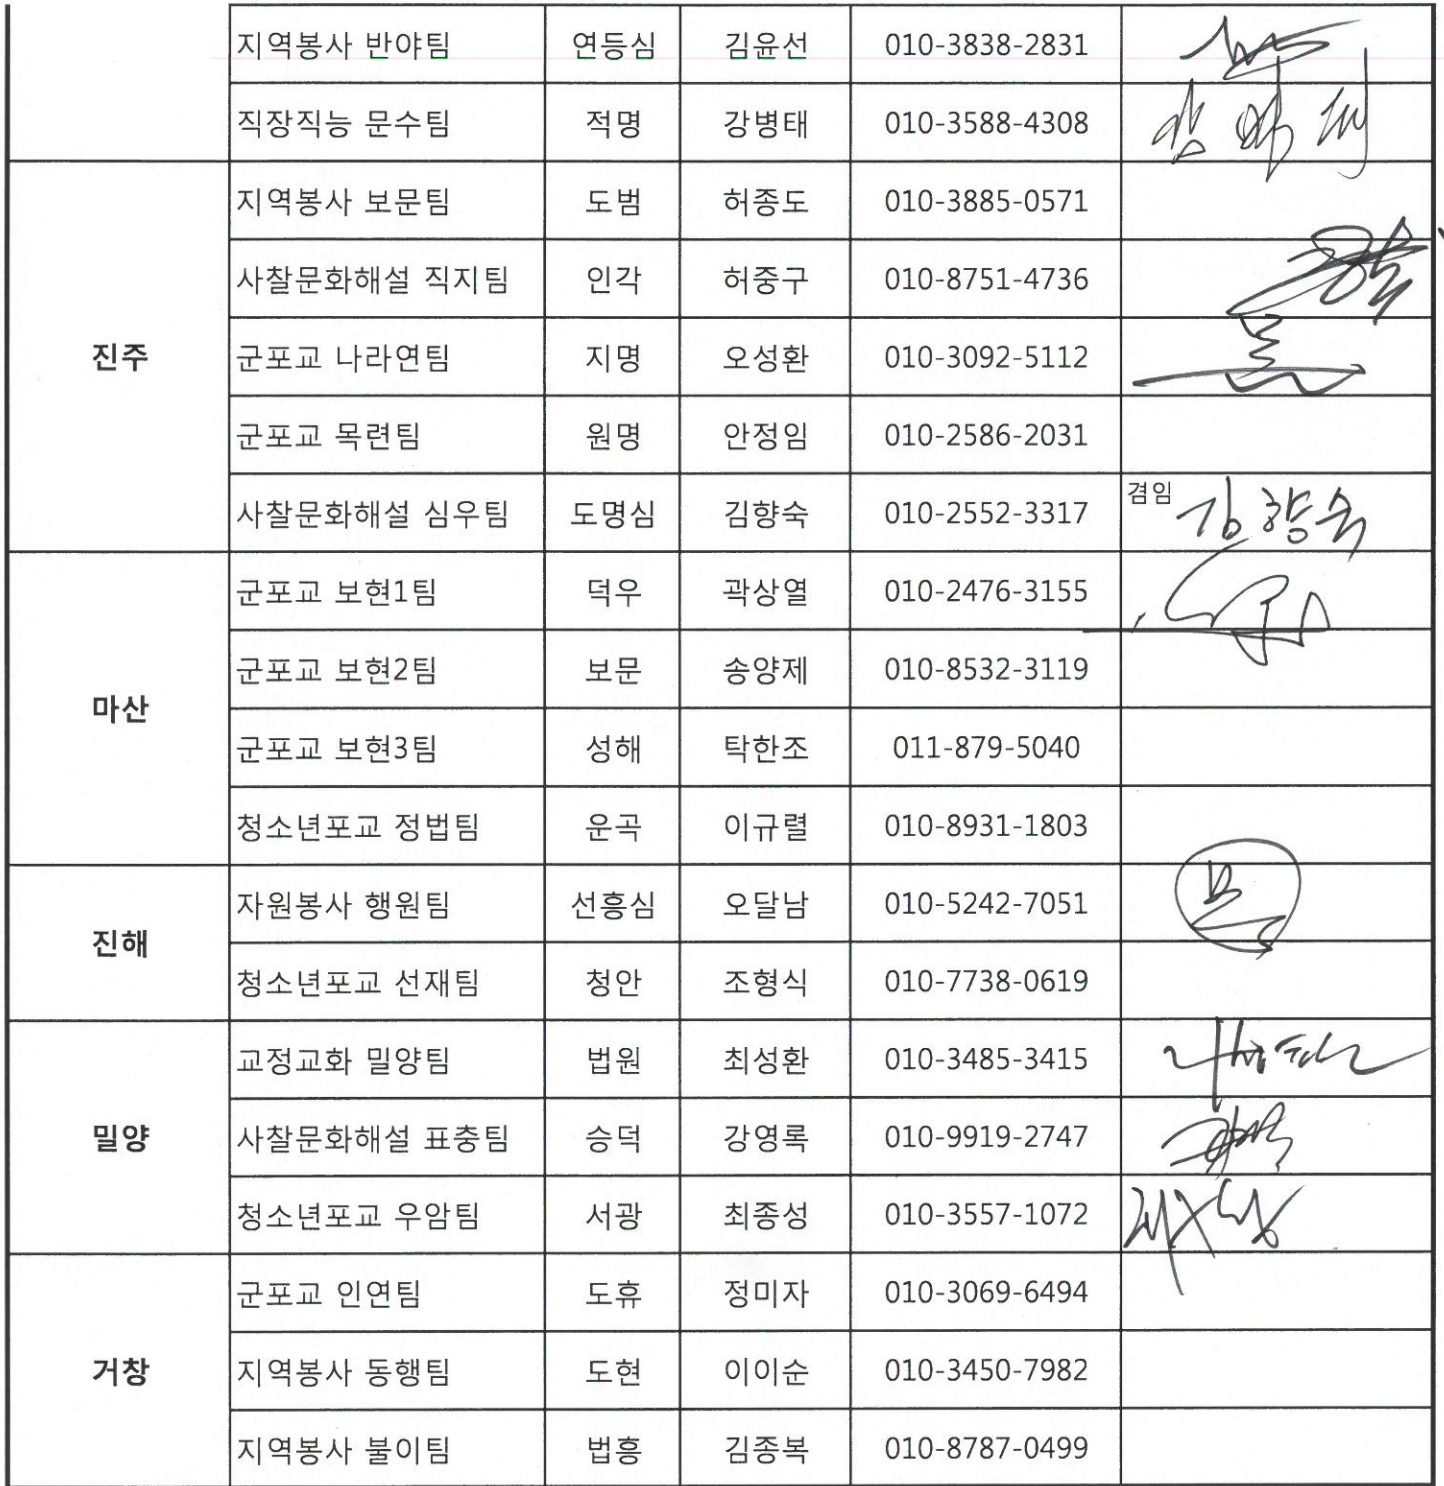 지역봉사 반야팀 연등심 김윤선 010-3838-2831
직장직능 문수팀 적명 강병태 010-3588-4308
지역봉사 보문팀 도범 허종도 010-3885-0571
사찰문화해설 직지팀 인각 허중구 010-8751-4736
진주 군포교 나라연팀 지명 오성환 010-3092-5112
군포교 목련팀 원명 안정임 010-2586-2031
사찰문화해설 심우팀 도명심 김향숙 010-2552-3317 겸임 김향숙
군포교 보현1팀 덕우 곽상열 010-2476-3155
군포교 보현2팀 보문 송양제 010-8532-3119
마산
군포교 보현3팀 성해 탁한조 011-879-5040
청소년포교 정법팀 운곡 이규렬 010-8931-1803
자원봉사 행원팀 선흥심 오달남 010-5242-7051
진해
청소년포교 선재팀 청안 조형식 010-7738-0619
교정교화 밀양팀 법원 최성환 010-3485-3415
밀양 사찰문화해설 표충팀 승덕 강영록 010-9919-2747
청소년포교 우암팀 서광 최종성 010-3557-1072
군포교 인연팀 도휴 정미자 010-3069-6494
거창 지역봉사 동행팀 도현 이이순 010-3450-7982
지역봉사 불이팀 법흥 김종복 010-8787-0499